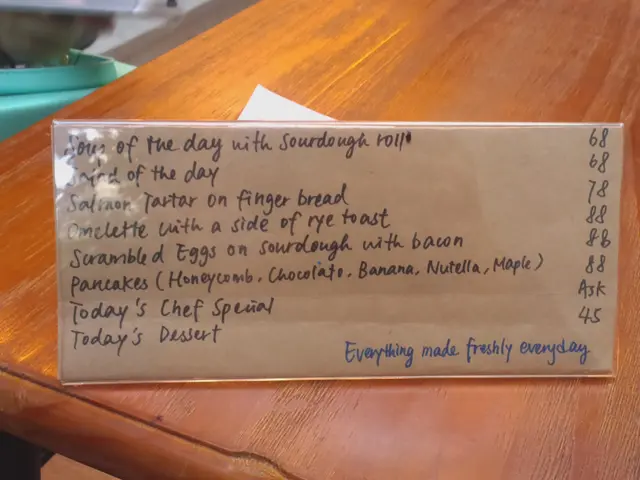 Soup of the day with Sourdough roll 68
Salad of the day 68
Salmon Tartar on finger bread 78
Omelette with a side of rye toast 88
Scrambled Eggs on sourdough with bacon 88
Pancakes (Honeycomb, Chocolate, Banana, Nutella, Maple) 88
Today's Chef Special Ask
Today's Dessert 45
Everything made freshly everyday